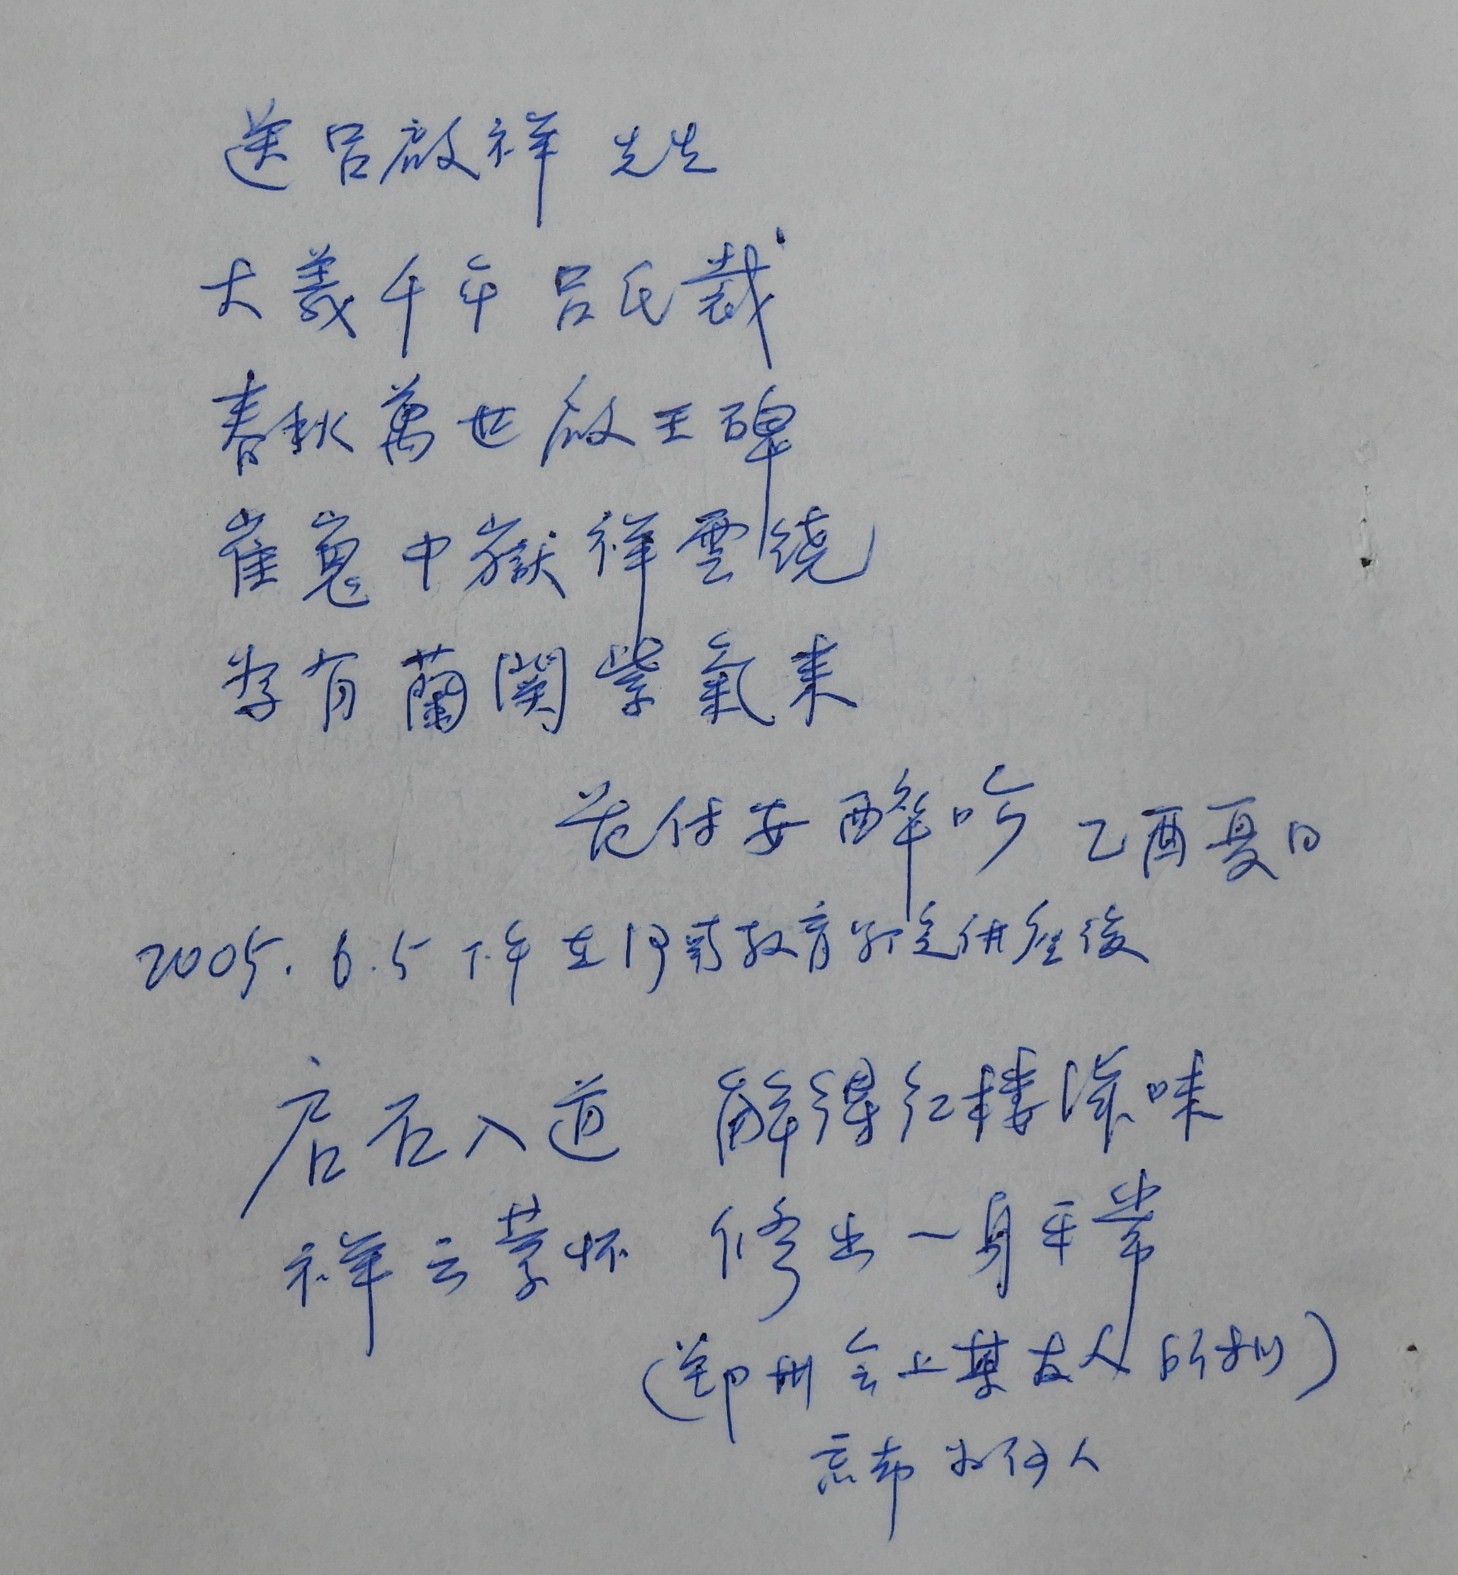 送吕啟祥 先生
大義千年吕氏裁
春秋萬世啟王碑
崔嵬中嶽祥雲繞
李有蘭閣紫氣来
范付安醉吟 乙酉夏日
2005.6.5下午在河南教育学院併座後
启石入道 解得红楼滋味
祥云荣怀 修出一身平常
(鄭州会上某友人所拟)
忘却为何人